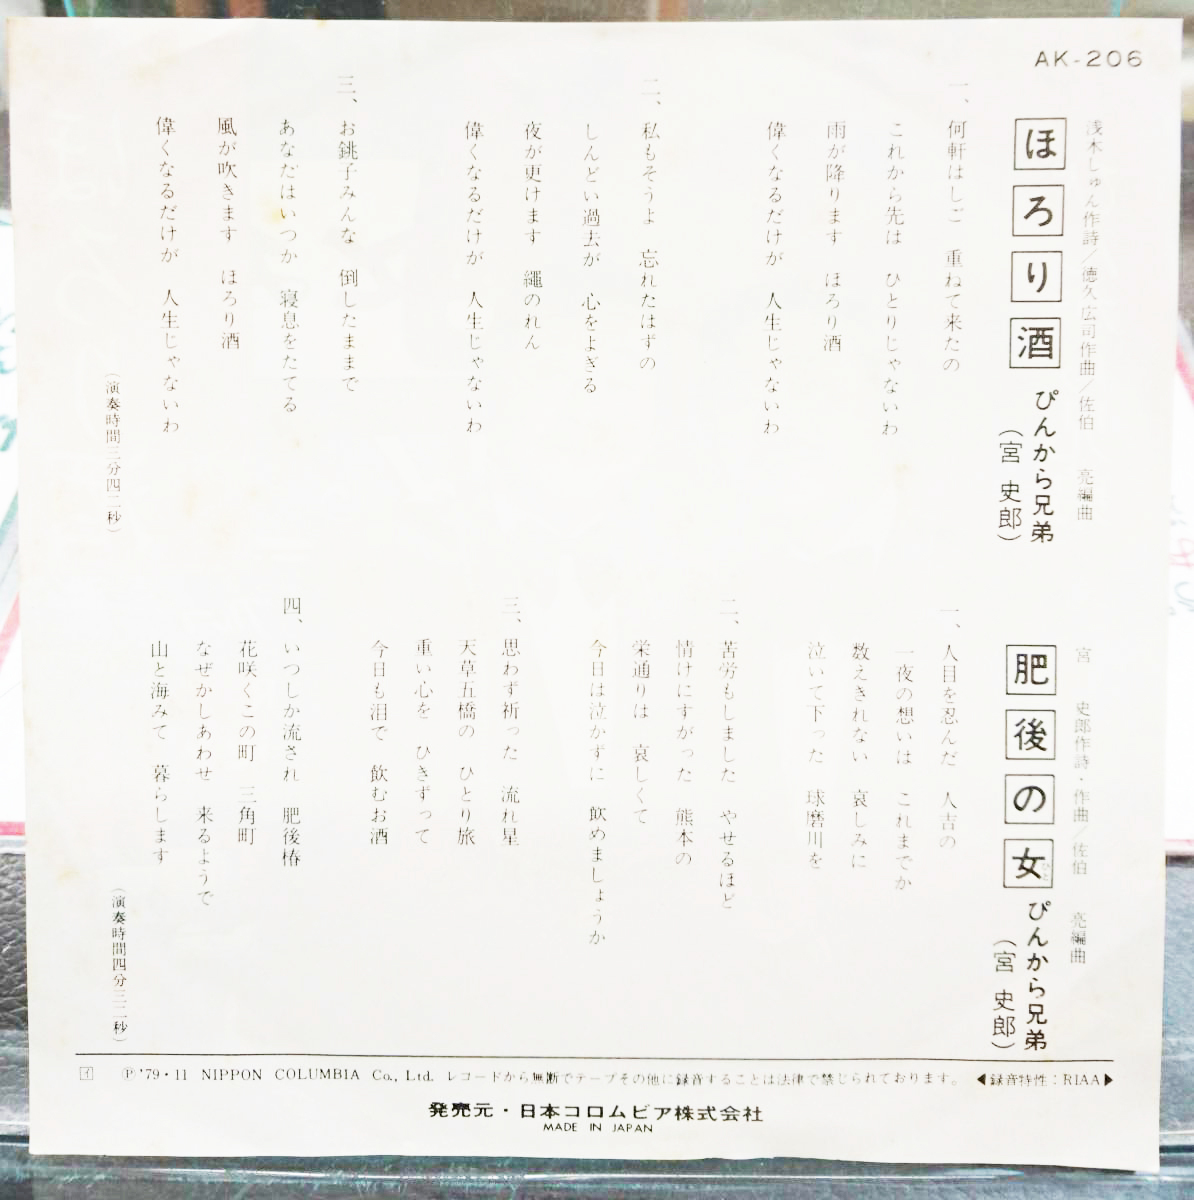 AK-206
浅木しゅん作詩/徳久広司作曲/佐伯 亮編曲
ほろり酒
ぴんから兄弟
(宮 史郎)
一、何軒はしご 重ねて来たの
これから先は ひとりじゃないわ
雨が降ります ほろり酒
偉くなるだけが 人生じゃないわ
二、私もそうよ 忘れたはずの
しんどい過去が 心をよぎる
夜が更けます 縄のれん
偉くなるだけが 人生じゃないわ
三、お銚子みんな 倒したままで
あなたはいつか 寝息をたてる
風が吹きます ほろり酒
偉くなるだけが 人生じゃないわ
(演奏時間三分四二秒)
宮 史郎作詩・作曲/佐伯 亮編曲
肥後の女
ひと
ぴんから兄弟
(宮 史郎)
一、人目を忍んだ 人吉の
一夜の想いは これまでか
数えきれない 哀しみに
泣いて下った 球磨川を
二、苦労もしました やせるほど
情けにすがった 熊本の
栄通りは 哀しくて
今日は泣かずに 飲めましょうか
三、思わず祈った 流れ星
天草五橋の ひとり旅
重い心を ひきずって
今日も泪で 飲むお酒
四、いつしか流され 肥後椿
花咲くこの町 三角町
なぜかしあわせ 来るようで
山と海みて 暮らします
(演奏時間四分三二秒)
イ Ⓟ'79・11 NIPPON COLUMBIA Co., Ltd. レコードから無断でテープその他に録音することは法律で禁じられております。 ◀録音特性：RIAA▶
発売元・日本コロムビア株式会社
MADE IN JAPAN